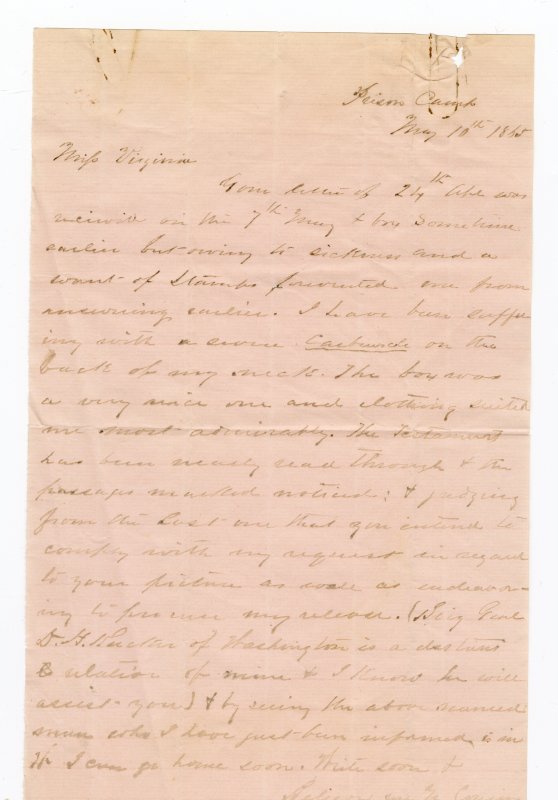 Prison Camp
May 10th 1865
Miss Virginia
Your letter of 24th Apl was
received on the 7th May & box Sometime
earlier but owing to sickness and a
want of Stamps prevented me from
answering earlier. I have been suffer
ing with a severe Carbuncle on the
back of my neck. The box was
a very nice one and clothing suited
me most admirably. The Testament
has been nearly read through & the
passages marked noticed; & judging
from the Last one that you intend to
comply with my request in regard
to your picture as well as endeavor-
ing to procure my release. (Brig Genl
D. H. Rucker of Washington is a distant
relation of mine & I know he will
assist you) & by seeing the above named
man who I have just been informed is in
I can go home soon. Write soon &